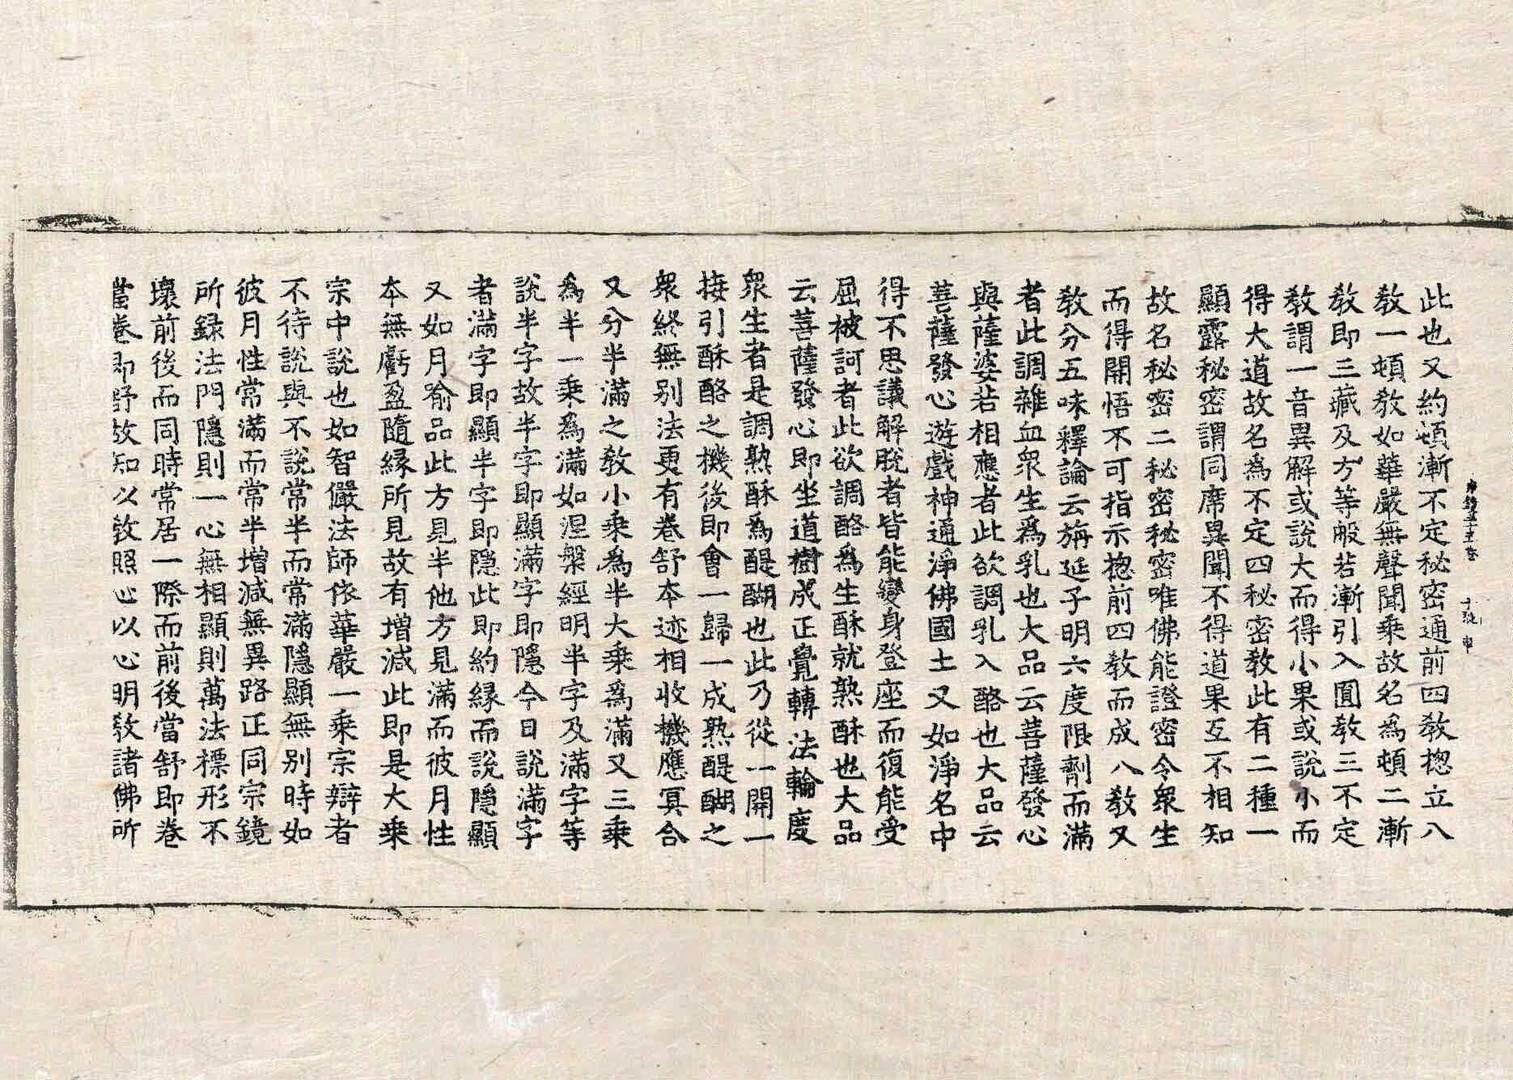 此也又約頓漸不定秘密通前四教揔立八
教一頓教如華嚴無聲聞乗故名為頓二漸
教即三藏及方等般若漸引入圎教三不定
教謂一音異解或說大而得小果或說小而
得大道故名為不定四秘密教此有二種一
顯露秘密謂同席異聞不得道果互不相知
故名秘密二秘密秘密唯佛能證密令衆生
而得開悟不可指示揔前四教而成八教又
教分五味釋論云旃延子明六度限劑而滿
者此調雜血衆生為乳也大品云菩薩發心
與薩婆若相應者此欲調乳入酪也大品云
菩薩發心遊戲神通淨佛國土又如淨名中
得不思議解脫者皆能變身登座而復能受
屈被訶者此欲調酪為生酥就熟酥也大品
云菩薩發心即坐道樹成正覺轉法輪度
衆生者是調熟酥為醍醐也此乃從一開一
接引酥酪之機後即會一歸一成熟醍醐之
衆終無别法更有卷舒本迹相收機應冥合
又分半滿之教小乗為半大乗為滿又三乗
為半一乗為滿如涅槃經明半字及滿字等
說半字故半字即顯滿字即隱今日說滿字
者滿字即顯半字即隱此即約縁而說隱顯
又如月喻品此方見半他方見滿而彼月性
本無虧盈隨縁所見故有增減此即是大乗
宗中說也如智儼法師依華嚴一乗宗辯者
不待說與不說常半而常滿隱顯無别時如
彼月性常滿而常半增減無異路正同宗鏡
所録法門隱則一心無相顯則萬法標形不
壞前後而同時常居一際而前後當舒即卷
當卷即舒故知以教照心以心明教諸佛所